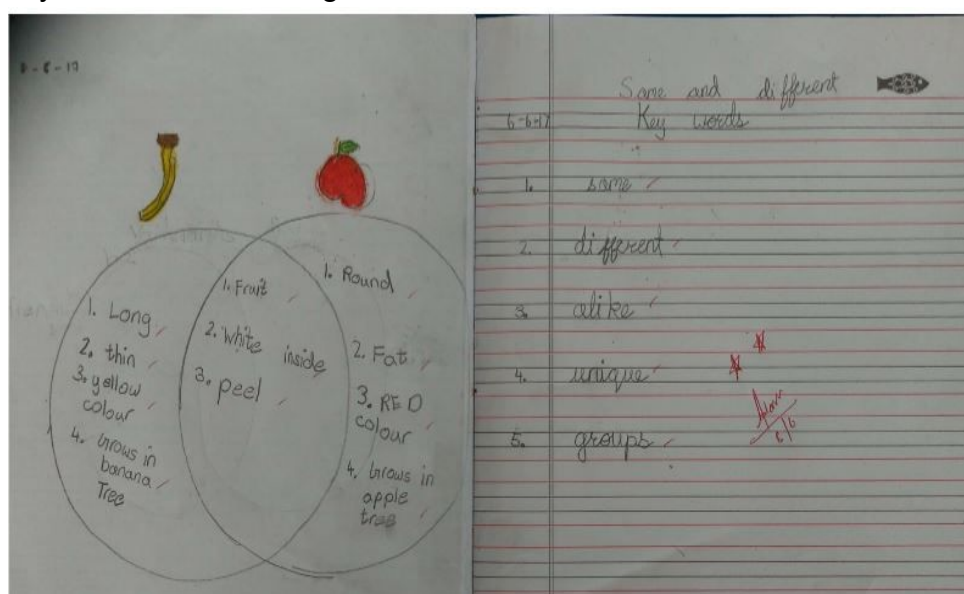 1. Long
2. thin
3. yellow
colour
4. Grows in
banana
Tree
1. Fruit
2. White inside
3. peel
1. Round
2. Fat
3. RED
colour
4. Grows in
apple
tree
Same and different
6-6-17 Key words
1. same
2. different
3. alike
4. unique
5. groups
6/6